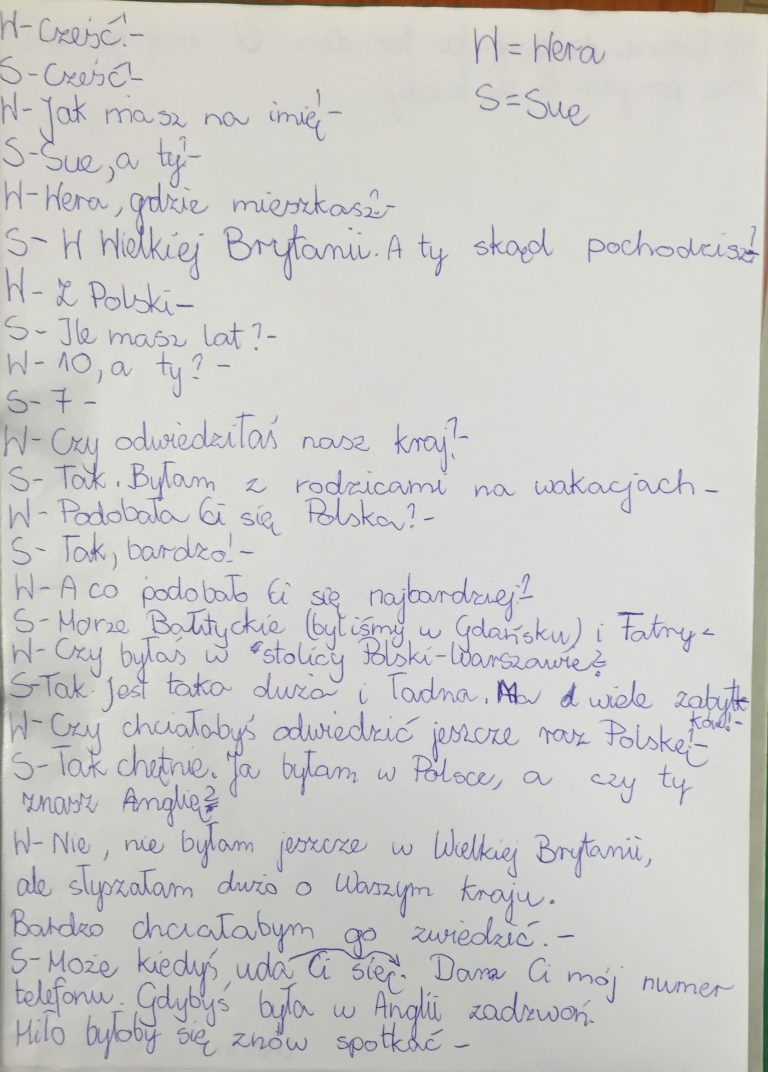 W-Cześć!-
W = Wera
S-Cześć!-
S = Sue
W-Jak masz na imię!-
S-Sue, a ty?-
W-Wera, gdzie mieszkasz?-
S-W Wielkiej Brytanii. A ty skąd pochodzisz?-
W-Z Polski-
S-Ile masz lat?-
W-10, a ty?-
S-7-
W-Czy odwiedziłaś nasz kraj?-
S-Tak. Byłam z rodzicami na wakacjach-
W-Podobała Ci się Polska?-
S-Tak, bardzo!-
W-A co podobało Ci się najbardziej?-
S-Morze Bałtyckie (byliśmy w Gdańsku) i Tatry-
W-Czy byłaś w stolicy Polski-Warszawie?
S-Tak. Jest taka duża i ładna. Ma wiele zabyt
ków!-
W-Czy chciałabyś odwiedzić jeszcze raz Polskę?-
S-Tak chętnie. Ja byłam w Polsce, a czy ty
znasz Anglię?
W-Nie, nie byłam jeszcze w Wielkiej Brytanii,
ale słyszałam dużo o Waszym kraju.
Bardzo chciałabym go zwiedzić.-
S-Może kiedyś uda Ci się. Dam Ci mój numer
telefonu. Gdybyś była w Anglii zadzwoń.
Miło byłoby się znów spotkać-